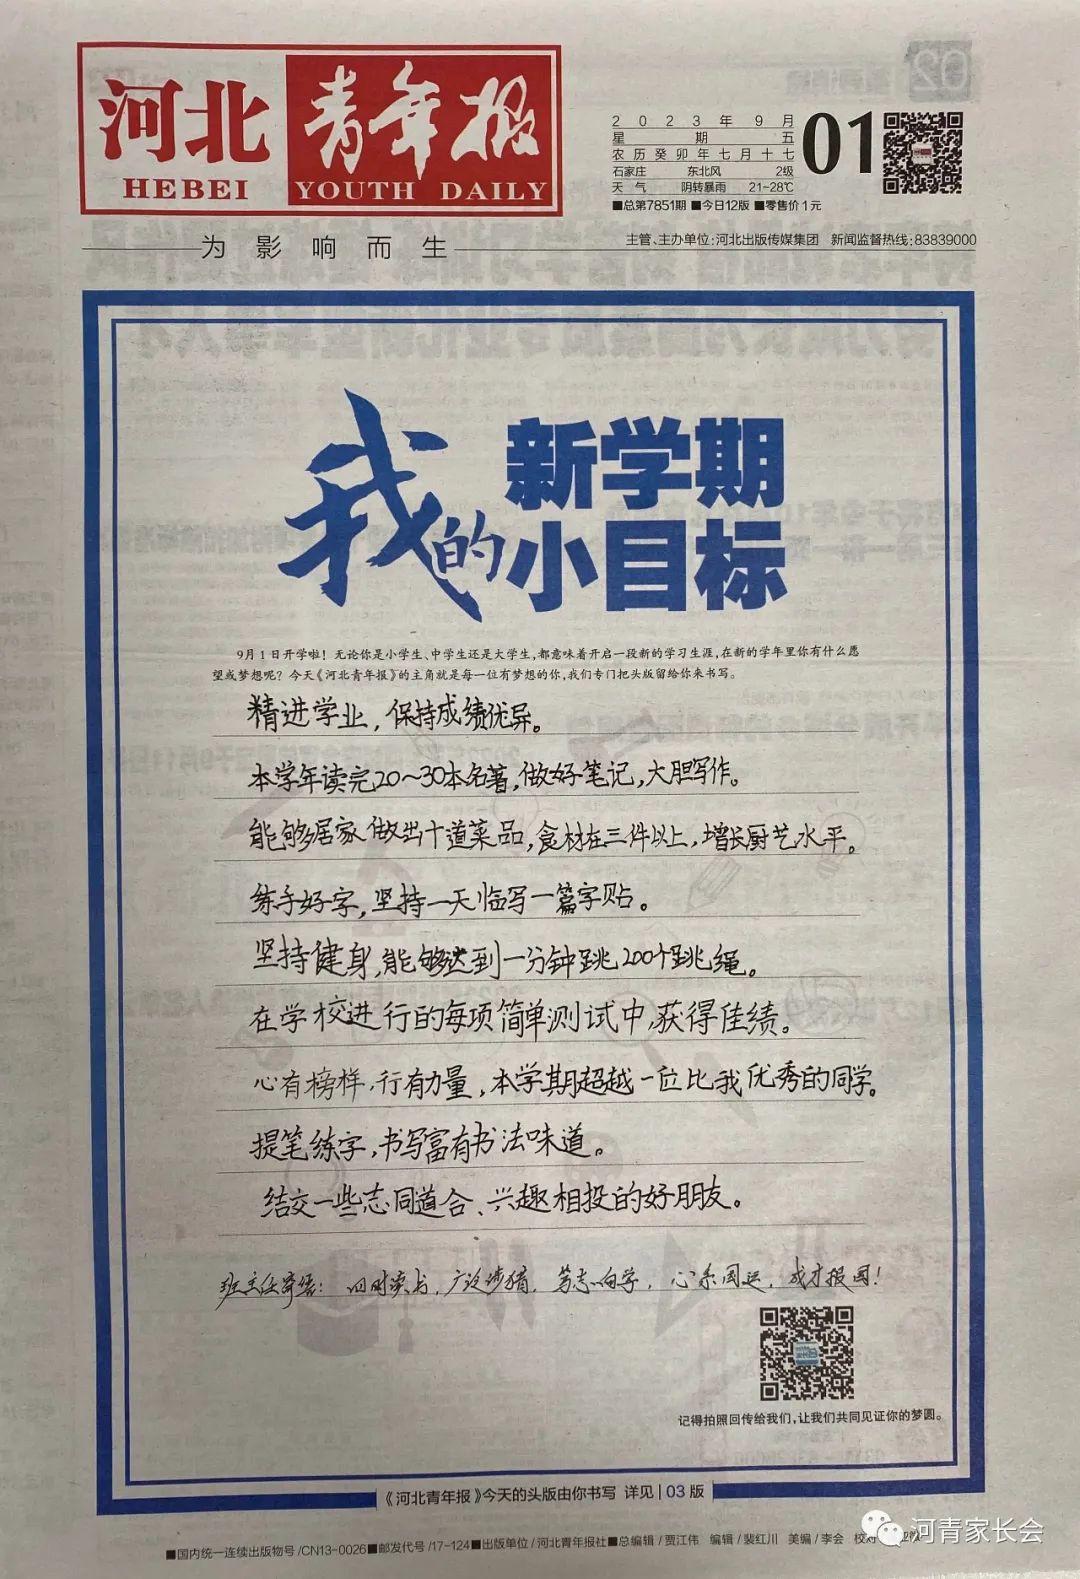 河北 青年报
HEBEI YOUTH DAILY
2023年9月
星期五
农历癸卯年七月十七
石家庄 东北风 2级
天气 阴转暴雨 21-28℃
01
■总第7851期 ■今日12版 ■零售价1元
为影响而生
主管、主办单位:河北出版传媒集团 新闻监督热线:83839000
我的
新学期
小目标
9月1日开学啦！无论你是小学生、中学生还是大学生,都意味着开启一段新的学习生涯,在新的学年里你有什么愿
望或梦想呢？今天《河北青年报》的主角就是每一位有梦想的你,我们专门把头版留给你来书写。
精进学业，保持成绩优异。
本学年读完20～30本名著,做好笔记,大胆写作。
能够居家做出十道菜品,食材在三件以上,增长厨艺水平。
练手好字,坚持一天临写一篇字贴。
坚持健身,能够达到一分钟跳200个跳绳。
在学校进行的每项简单测试中,获得佳绩。
心有榜样,行有力量,本学期超越一位比我优秀的同学。
提笔练字,书写富有书法味道。
结交一些志同道合、兴趣相投的好朋友。
班主任寄语：四时读书,广泛涉猎,笃志向学,心系国运,成才报国！
记得拍照回传给我们,让我们共同见证你的梦圆。
《河北青年报》今天的头版由你书写 详见|03版
■国内统一连续出版物号/CN13-0026■邮发代号/17-124■出版单位/河北青年报社■总编辑/贾江伟 编辑/裴红川 美编/李会 校对
河青家长会